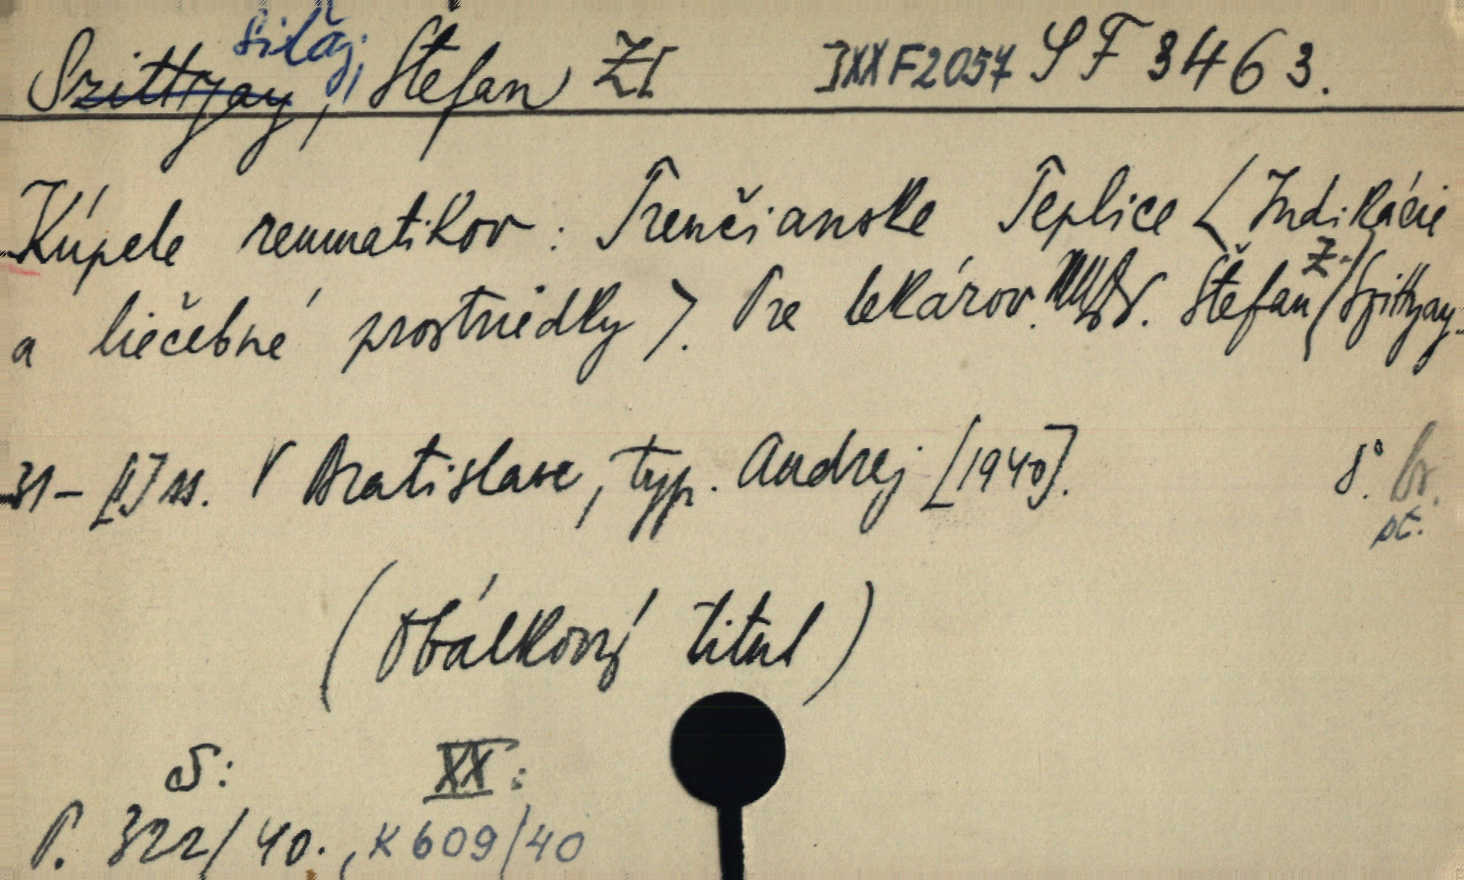 Silāj,
Szittyay, Štefan ZI IXXF2057 SF 3463.
Kúpele reumatikov: Trenčianske Teplice <Indikácie
a liečebné prostriedky>. Pre lekárov. Dr. Štefan Z. (Szittyay.
31-[I] ss. V Bratislave, typ. Andrej [1940]. 8°. br.
(Obálkový titul)
S: XX:
P. 322/40., K 609/40